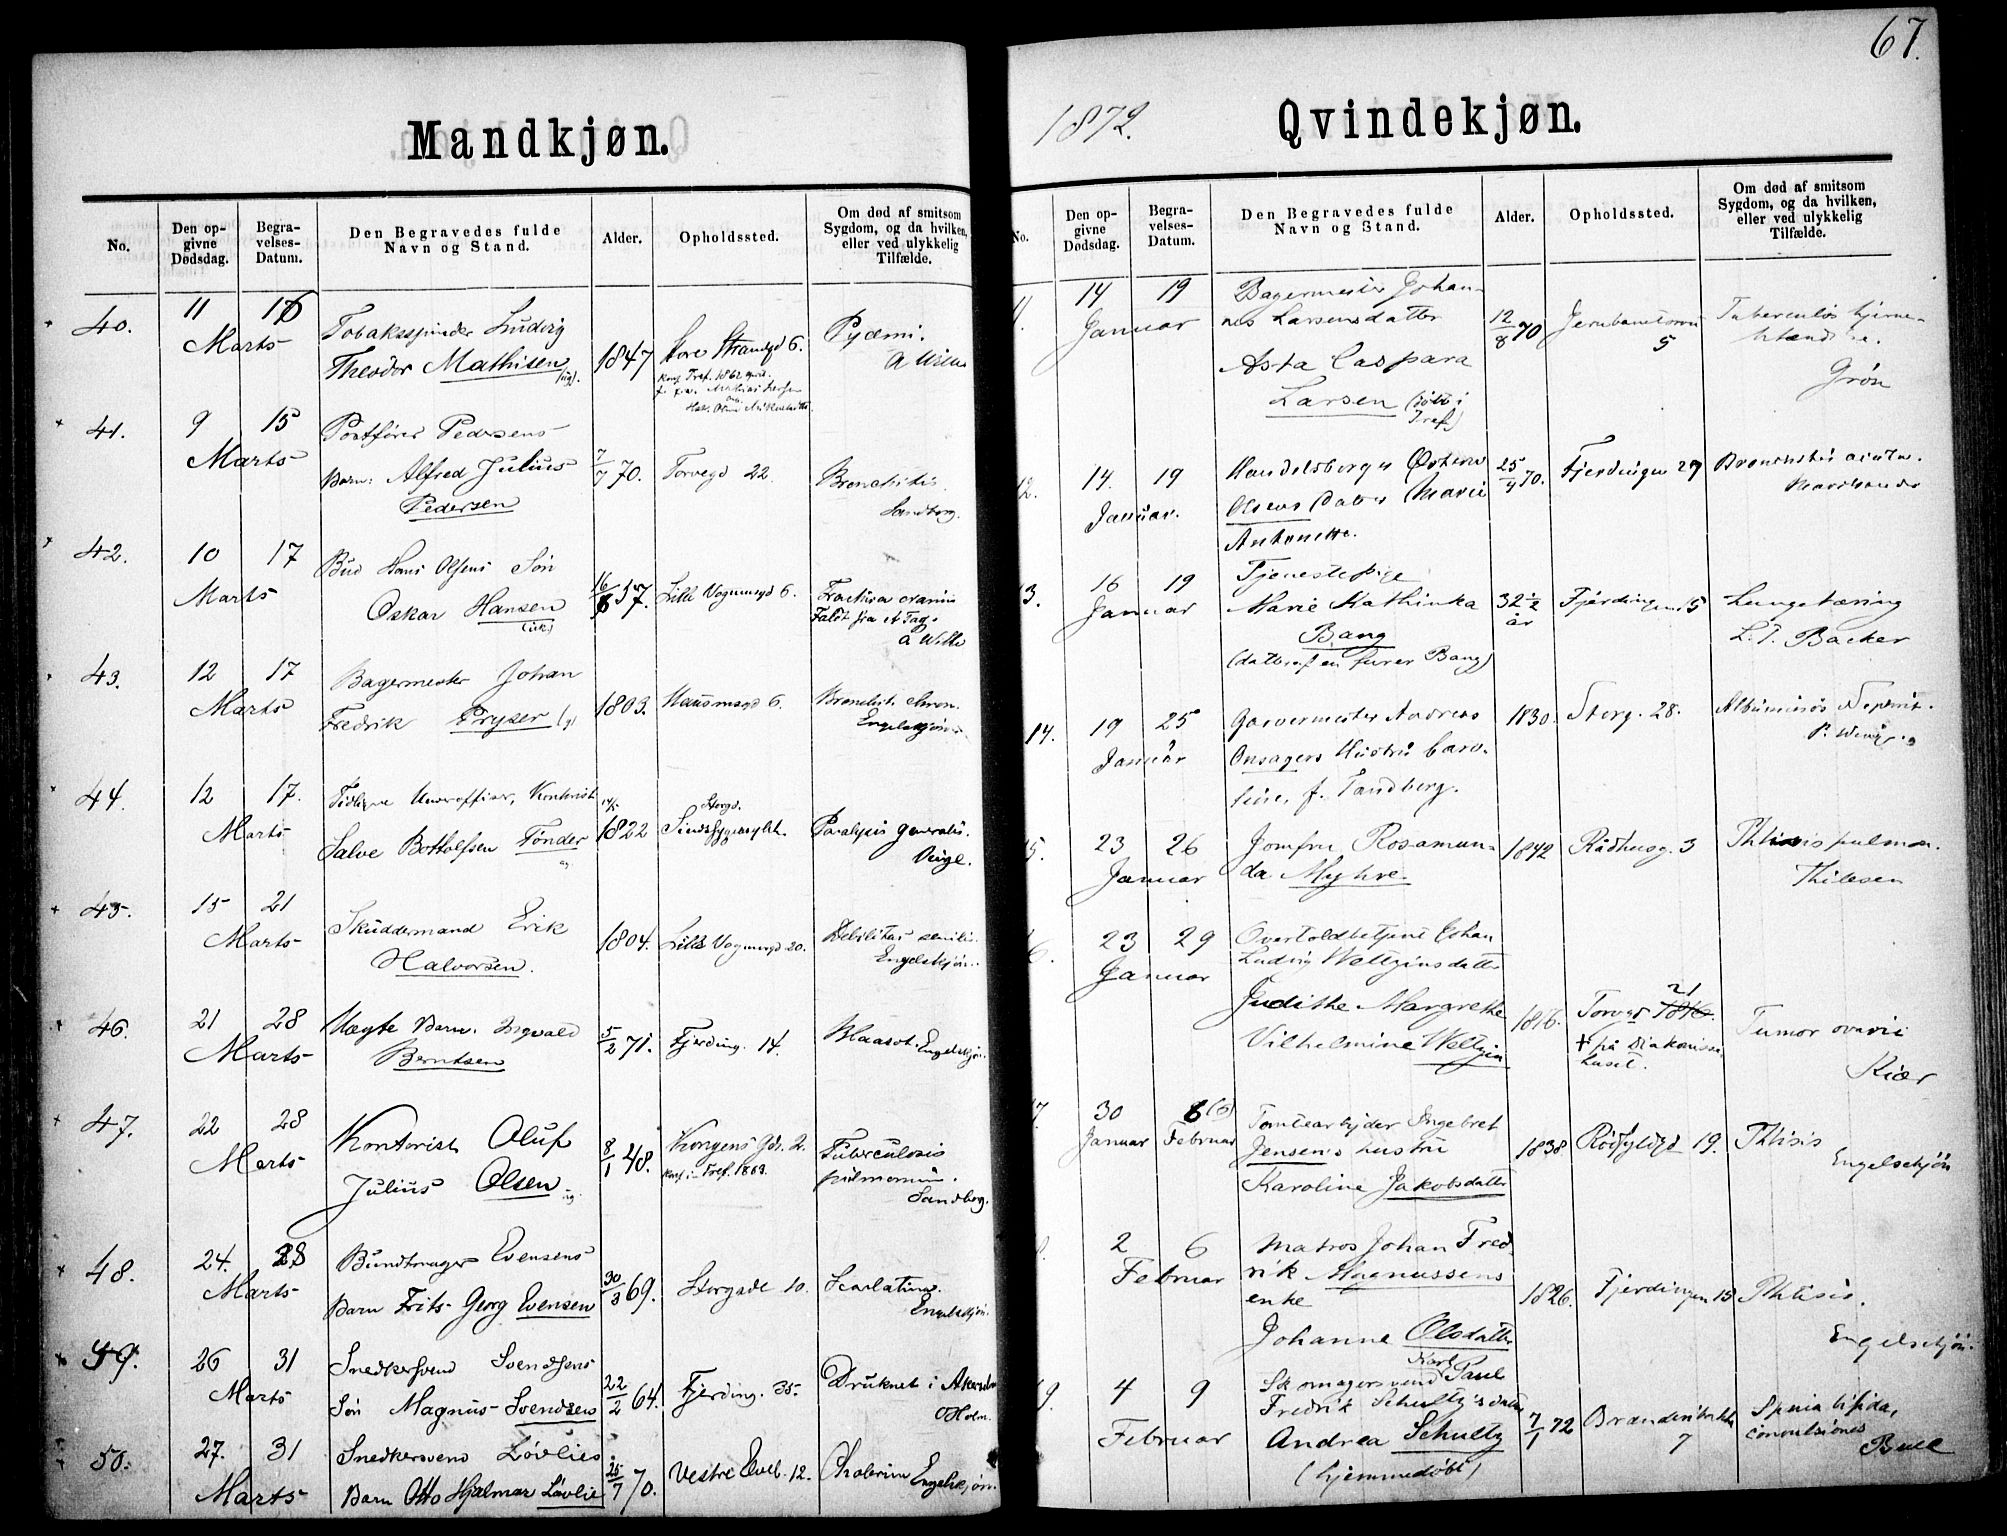 67.
Mandkjøn.
No.
Den op-
givne
Dødsdag.
Begra-
velses-
Datum.
Den Begravedes fulde
Navn og Stand.
Alder.
Opholdssted.
Om død af smitsom
Sygdom, og da hvilken,
eller ved ulykkelig
Tilfælde.
40.
11
16
Marts
Tobaksspinder Ludvig
Theodor Mathisen
(ug).
1847
Store Strandgd 6.
Konf. Tref. 1862
Pyæmi.
A Wille
41.
9
15
Marts
Postfører Pedersens
Barn: Alfred Julius
Pedersen
7/7 70.
Torvegd 22.
Bronchitis.
Sandberg.
42.
10
17
Marts
Bud Hans Olsens Søn
Oskar Hansen
57.
Lille Vognmgd 6.
Fractura cranii
Faldt fra et Tag.
A Wille
43.
12
17
Marts
Bagermester Johan
Fredrik Pryser (g)
1803.
Hausmsgd 6.
Bronchit. chron.
Engelskjøn.
44.
12
17.
Marts
Tidligere Underofficer, Kontorist
Salve Bottolfsen Tønder
1822
Storgd.
Sindssygeasylet.
Paralysis generalis.
45.
15
21
Marts
Skuddermand Erik
Halvorsen.
1804.
Lille Vognmgd 20.
Debilitas senilis.
Engelskjøn.
46
21
28
Marts
Uægte Barn. Ingvald
Berntsen
5/2 71.
Fjerding. 14.
Blaasot. Engelskjøn.
47.
22
28
Marts
Kontorist Oluf
Julius Olsen
ug.
8/1 48.
Kongens Gd. 2.
Konf. i Tref. 1863.
Tuberculosis
pulmonum.
Sandberg.
48.
24.
28
Marts
Bundtmager Evensens
Barn Frits Georg Evensen
30/3 69.
Storgade 10.
Scarlatina.
Engelskjøn.
49.
26
31
Marts
Snedkersvend Svendsens
Søn Magnus Svendsens
22/2 64.
Fjerding. 35.
Druknet i Akerselv
Holm.
50.
27.
31
Marts
Snedkersvend Løvlies
Barn Otto Hjalmar Løvlie
25/7 70.
Vestre Elveb. 12.
Cholerine
Engelskjøn.
1872.
Qvindekjøn.
No.
Den op-
givne
Dødsdag.
Begra-
velses-
Datum.
Den Begravedes fulde
Navn og Stand.
Alder.
Opholdssted.
Om død af smitsom
Sygdom, og da hvilken,
eller ved ulykkelig
Tilfælde.
14
19
Januar
Bagermester Johan-
nes Larsensdatter
Asta Caspara
Larsen (døbt i
Tref.)
12/8 70
Jernbanetorvet
5
Tuberculøs hjerne-
betændelse.
Grøn
12.
14.
19
Januar.
Handelsborger Østen
Olsens Datter Marie
Antonette.
25/9 70.
Fjerdingen 27
Bronchitis acuta.
13.
16
19
Januar
Tjenestepige
Marie Kathinka
Bang
(datter af en furer Bang)
32 1/2
år
Fjerdingen 15
Lungetæring
L. J. Backer
14.
19
25
Januar
Garvermester Andreas
Onsagers Hustru Caro-
line, f. Tandberg.
1830.
Storg. 28.
Albuminøs Nephrit.
P. Winge
15.
23
26
Januar
Jomfru Rosamun-
da Myhre.
1842
Rådhusg. 3
Phthisis pulmon.
Thilesen
23
29
Januar
Overtoldbetjent Johan
Ludvig Weltzinsdatter
Judithe Margrethe
Vilhelmine Weltzin
1816.
Torvgd 21
† på Diakonisse
huset.
Tumor ovarii
Kiær
17
30
6
Januar Februar
Tomtearbejder Ingebret
Jensens hustru
Karoline Jakobsdatter
1838.
Rødfyldgd 19.
Phthisis
Engelschjøn
2
6
Februar
Matros Johan Fred-
rik Magnussens
enke
Johanne Olsdatter
1826.
Fjerdingen 15
Phthisis.
Engelschjøn.
4
9
Februar
Skomagersvend Karl Paul
Fredrik Schultz's datter
Andrea Schultz
(hjemmedøbt)
7/1 72
7
Spina bifida,
convulsiones
Bull